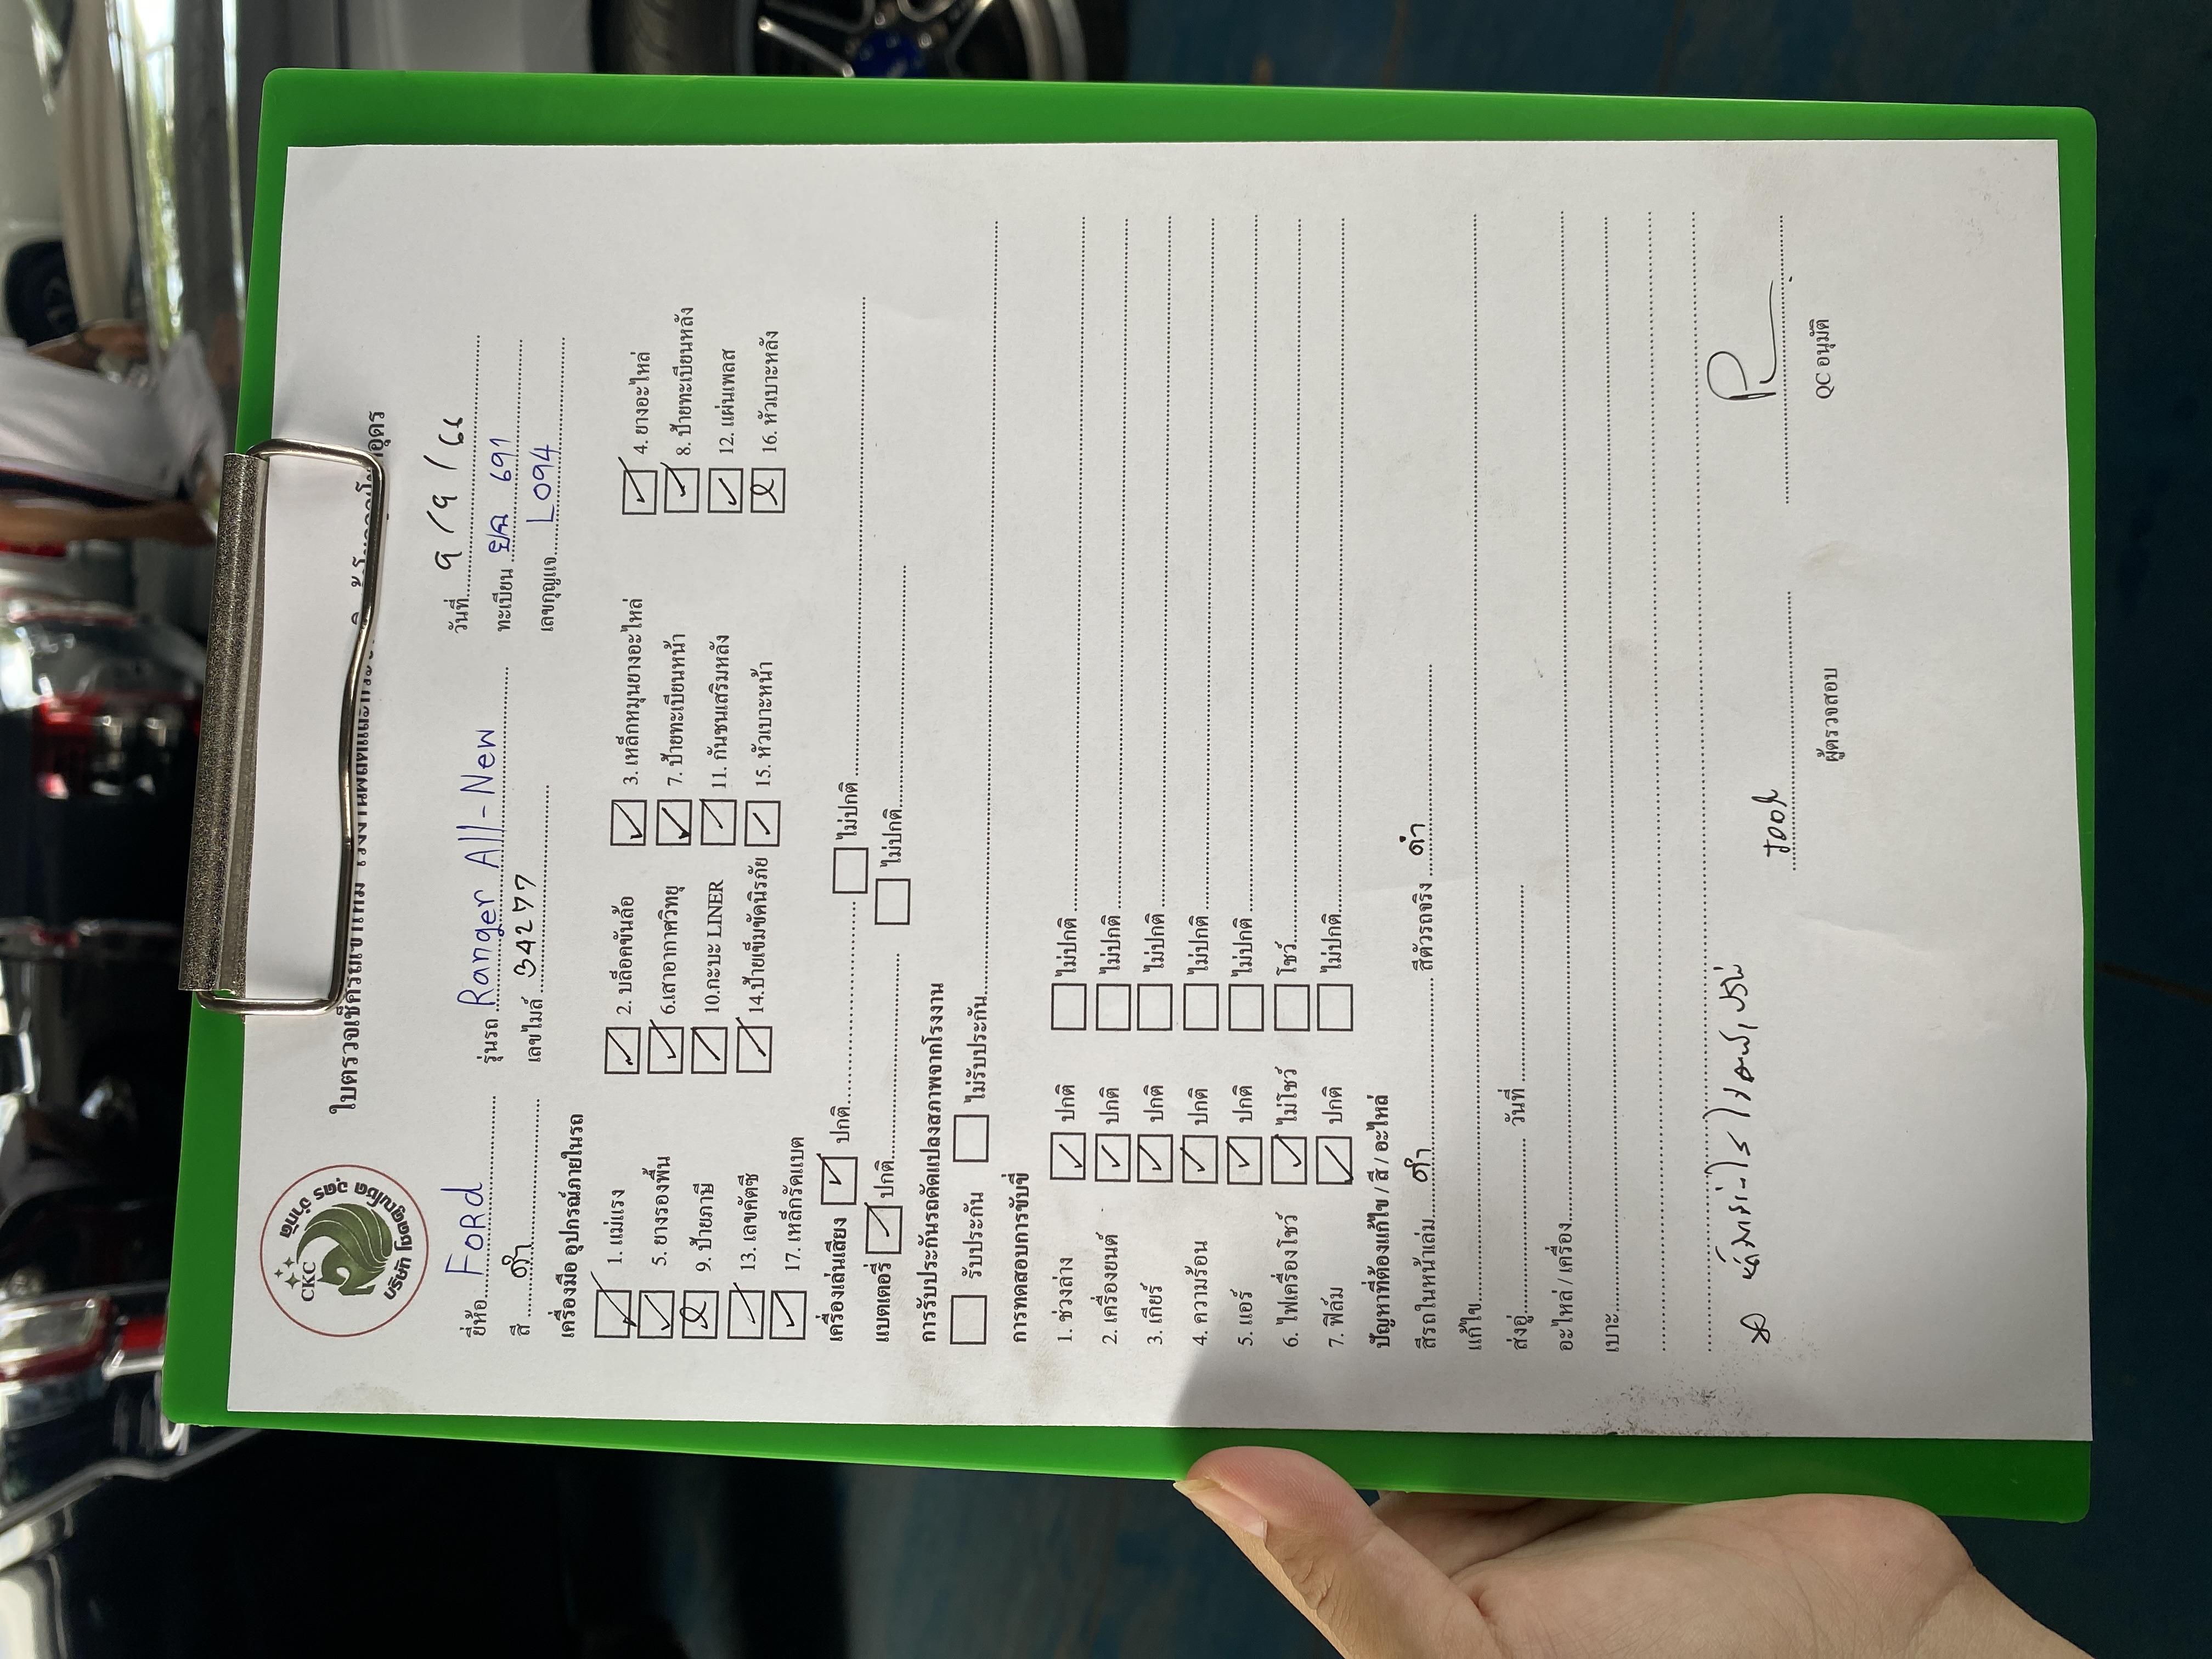 CKC
บริษัท เจตคูณโชค อุดร จำกัด
ใบตรวจเช็ครถเข้าใหม่
อุดร
ยี่ห้อ Ford รุ่นรถ Ranger All-New วันที่ 9/9/66
สี ดำ เลขไมล์ 34277 ทะเบียน 691
เลขกุญแจ L094
เครื่องมือ อุปกรณ์ภายในรถ
1. แม่แรง 2. บล็อคขันล้อ 3. เหล็กหมุนยางอะไหล่ 4. ยางอะไหล่
5. ยางรองพื้น 6.เสาอากาศวิทยุ 7. ป้ายทะเบียนหน้า 8. ป้ายทะเบียนหลัง
9. ป้ายภาษี 10.กะบะ LINER 11. กันชนเสริมหลัง 12. แผ่นเพลส
13. เลขคัตซี 14.ป้ายเข็มขัดนิรภัย 15. หัวเบาะหน้า 16. หัวเบาะหลัง
17. เหล็กรัดแบต
เครื่องเล่นเสียง ปกติ ไม่ปกติ
แบตเตอรี่ ปกติ ไม่ปกติ
การรับประกันรถดัดแปลงสภาพจากโรงงาน
รับประกัน ไม่รับประกัน
การทดสอบการขับขี่
1. ช่วงล่าง ปกติ ไม่ปกติ
2. เครื่องยนต์ ปกติ ไม่ปกติ
3. เกียร์ ปกติ ไม่ปกติ
4. ความร้อน ปกติ ไม่ปกติ
5. แอร์ ปกติ ไม่ปกติ
6. ไฟเครื่องโชว์ ไม่โชว์ โชว์
7. ฟิล์ม ปกติ ไม่ปกติ
ปัญหาที่ต้องแก้ไข / สี / อะไหล่
สีรถในหน้าเล่ม ดำ สีตัวรถจริง ดำ
แก้ไข
ส่งอู่ วันที่
อะไหล่ / เครื่อง
เบาะ
ผู้ตรวจสอบ QC อนุมัติ